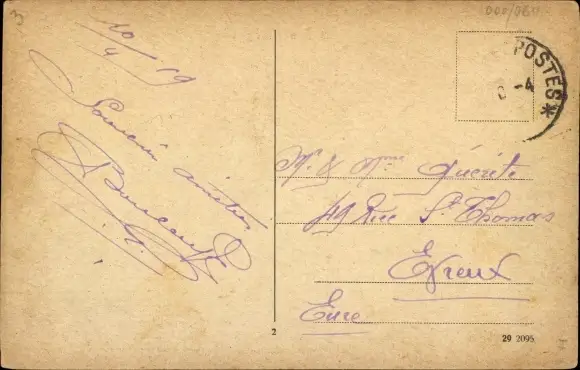 3
10/4 19
Souvenir
POSTES *
-4
Mr & Mme Quérité
49 Rue St Thomas
Evreux
Eure
2
29 2095